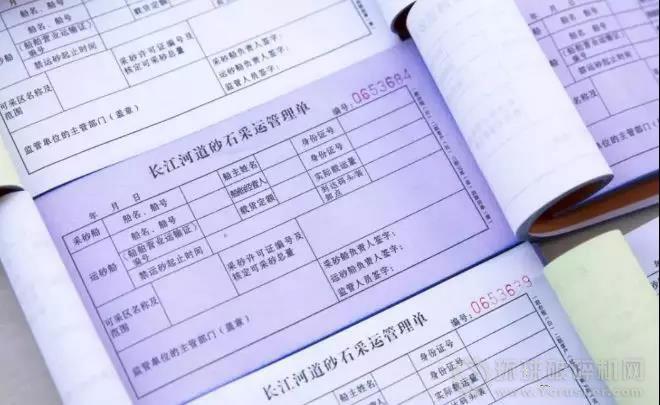 船名、船号
船名、船号
(船舶营业运输证)
编号
禁运砂起止时间
采砂许可证编号及
核定可采砂总量
采砂船负责人签字：
运砂船负责人签字：
监管人员签字：
可采区名称及
范围
监管单位的主管部门（盖章）
长江河道砂石采运管理单
编号：0653684
年 月 日
采砂船
船名、船号
船主姓名
身份证号
运砂船
船名、船号
(船舶营业运输证)
编号
船舶经营人
身份证号
载货定额
实际载运量
到达码头装
卸点
禁运砂起止时间
采砂许可证编号及
核定可采砂总量
采砂船负责人签字：
运砂船负责人签字：
监管人员签字：
可采区名称及
范围
监管单位的主管部门（盖章）
长江河道砂石采运管理单
编号：0653639
年 月 日
船名、船号
船主姓名
身份证号
身份证号
实际载运量
环球破碎机网
www.Ycrusher.com